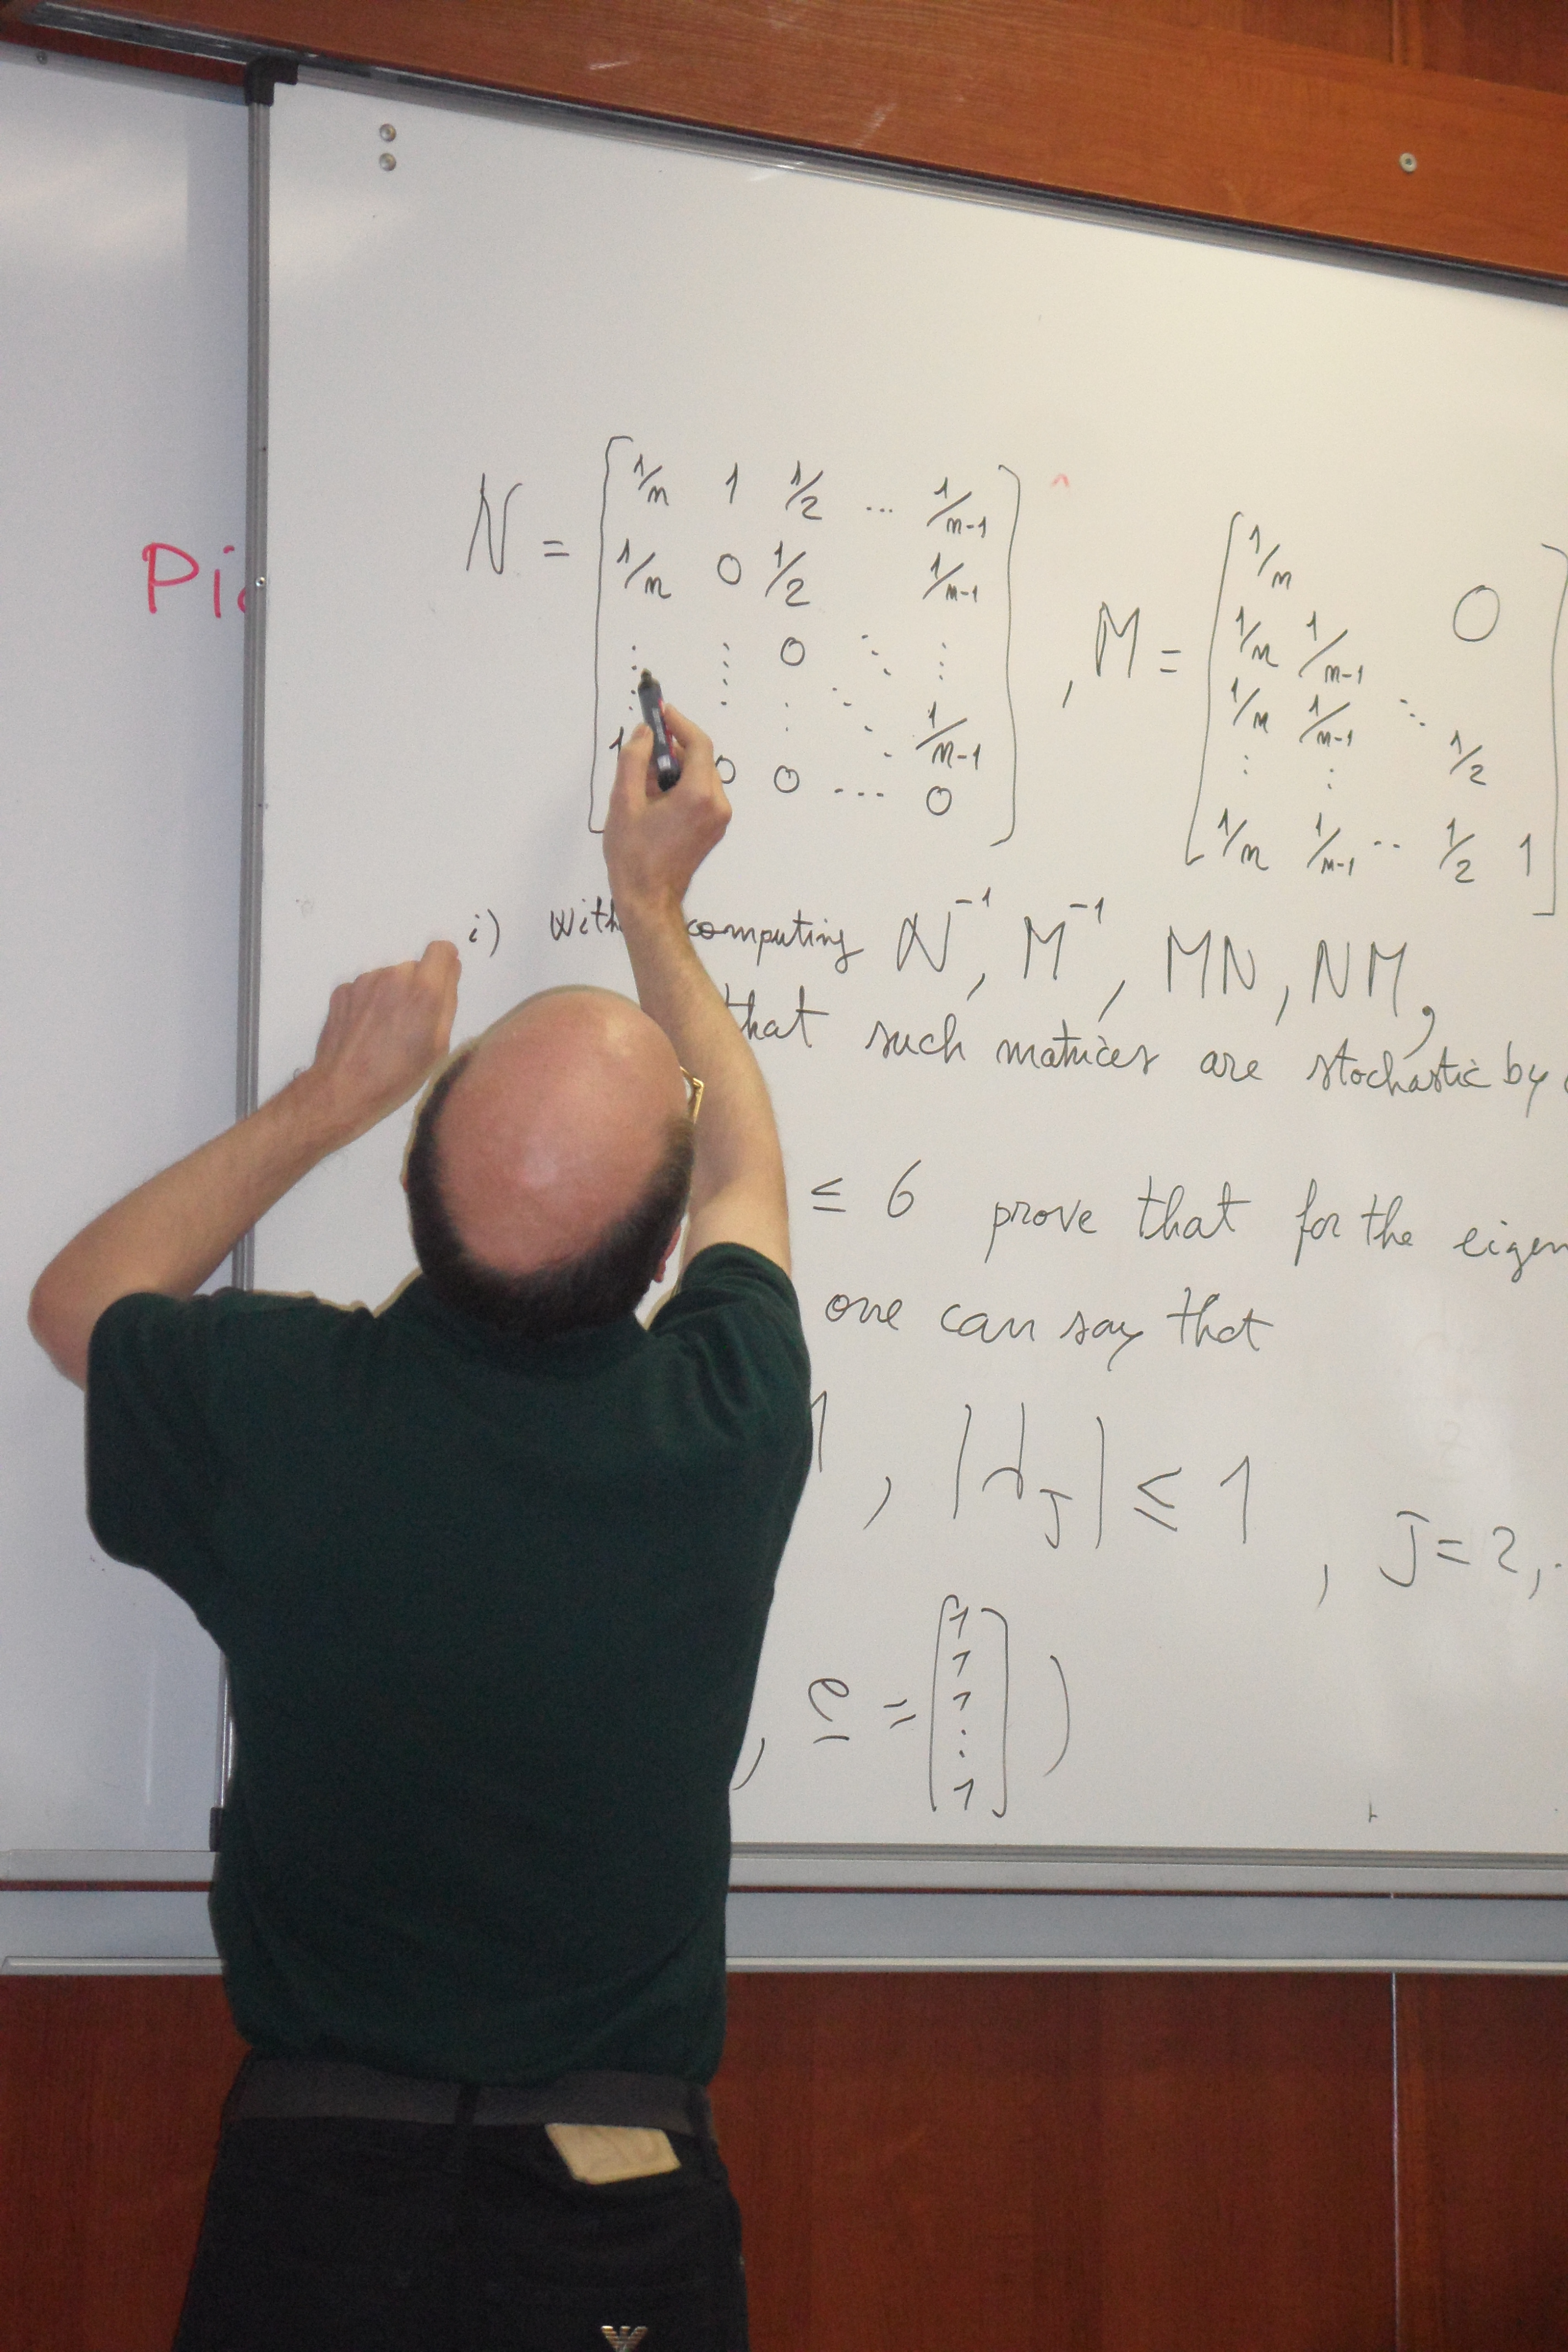 N = [ 1/n 1 1/2 ... 1/n-1
1/n 0 1/2 1/n-1
⋮ ⋮ 0 ⋱ ⋮
1 ⋮ ⋱ 1/n-1
0 0 ... 0 ]
, M = [ 1/n 0
1/n 1/n-1
1/n 1/n-1 ⋱ 1/2
⋮ ⋮
1/n 1/n-1 .. 1/2 1 ]
i) With computing N⁻¹, M⁻¹, MN, NM,
that such matrices are stochastic by
≤ 6 prove that for the eigen
one can say that
1, |λ_J| ≤ 1, J=2,.
, e = [ 1
1
1
⋮
1 ] )